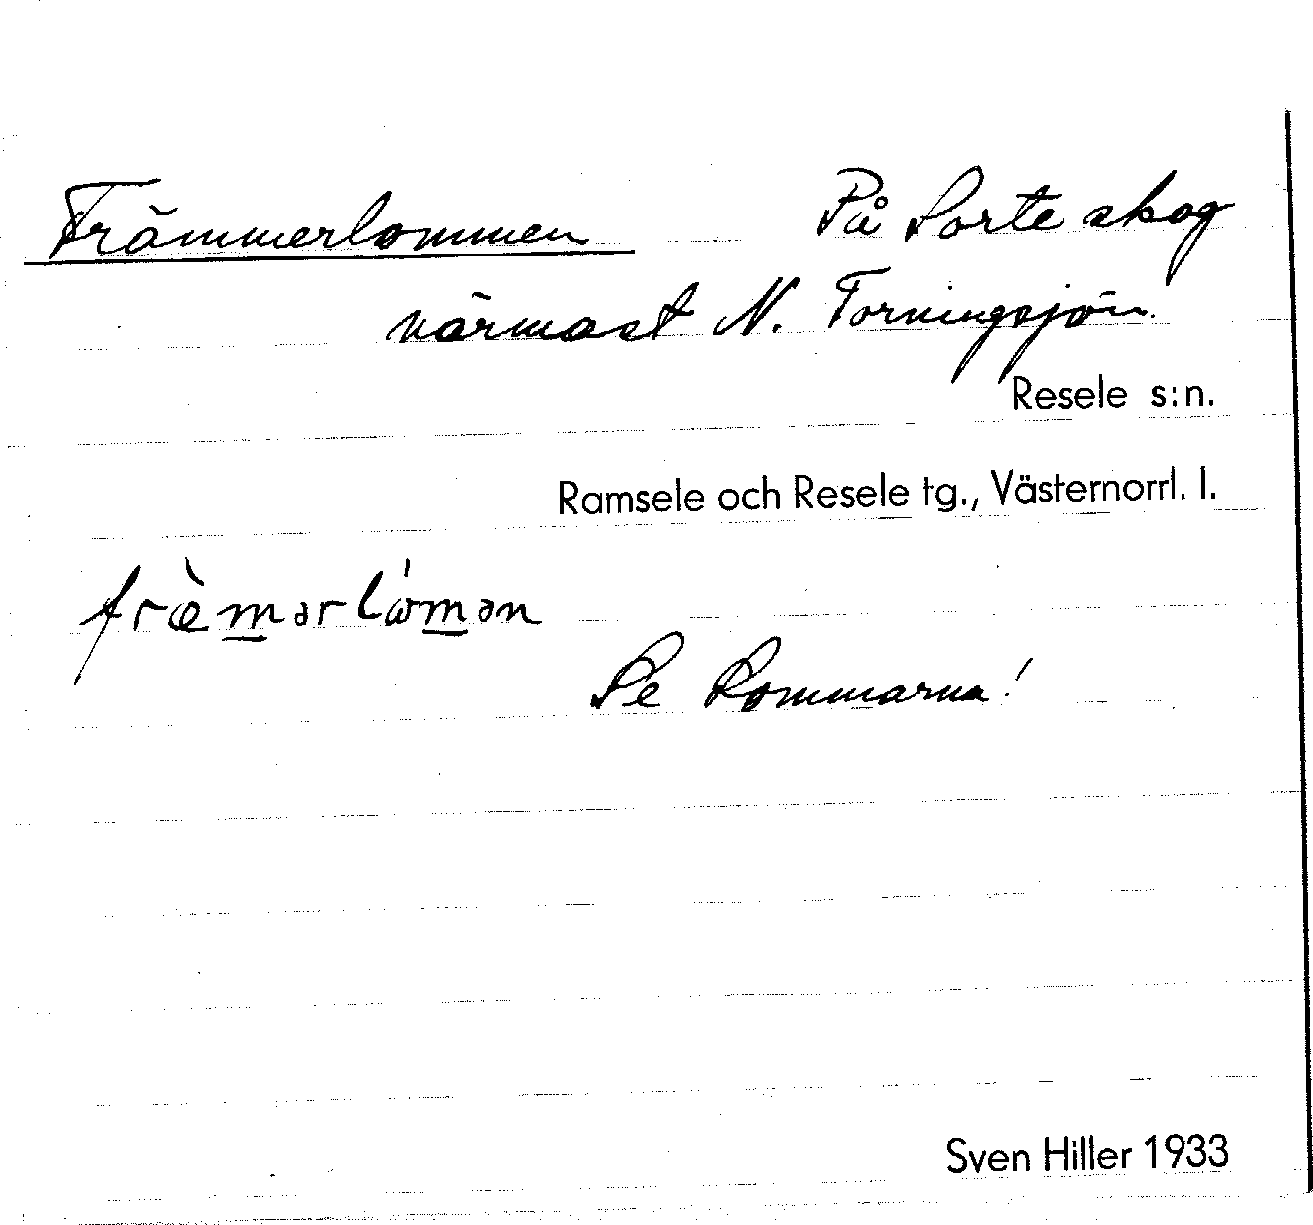 Främmerlommen På Sorte skog
närmast N. Torningsjön.
Resele s:n.
Ramsele och Resele tg., Västernorrl. l.
fræ̀mərlώmən
Se Lommarna!
Sven Hiller 1933